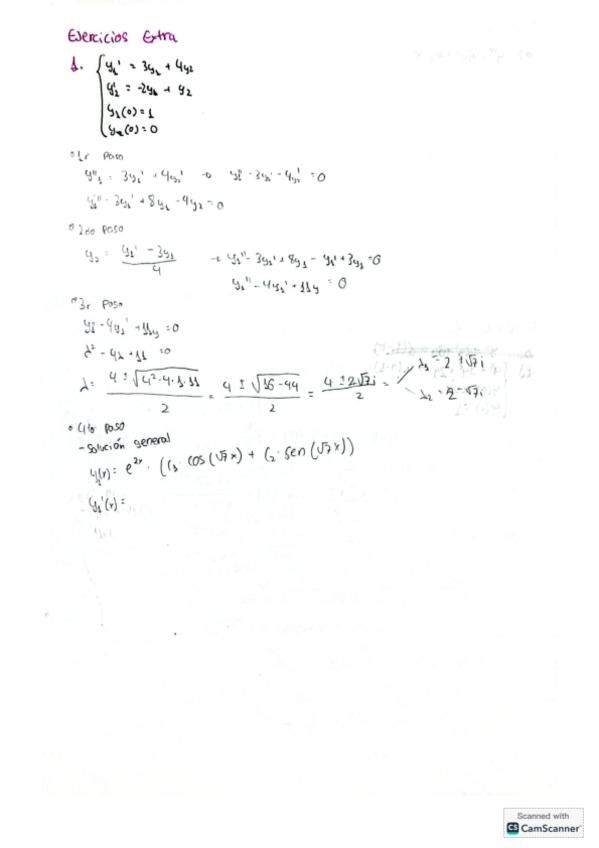 Ejercicios Extra
1. { y₁' = 3y₁ + 4y₂
y₂' = -2y₁ + y₂
y₁(0) = 1
y₂(0) = 0
• 1r Paso
y₁'' = 3y₁' + 4y₂' → y₁'' - 3y₁' - 4y₂' = 0
y₁'' - 3y₁' + 8y₁ - 4y₂ = 0
• 2do Paso
y₂ = (y₁' - 3y₁)/4 → y₁'' - 3y₁' + 8y₁ - y₁' + 3y₁ = 0
y₁'' - 4y₁' + 11y = 0
• 3r Paso
y₁'' - 4y₁' + 11y = 0
λ² - 4λ + 11 = 0
λ = (4 ± √(4² - 4·1·11))/2 = (4 ± √(16 - 44))/2 = (4 ± 2√7i)/2 = λ₁ = 2 + √7i
λ₂ = 2 - √7i
• 4to Paso
- Solución general
y₁(x) = e²ˣ · (C₁ cos(√7x) + C₂ · sen(√7x))
y₁'(x) =
Scanned with
CS CamScanner